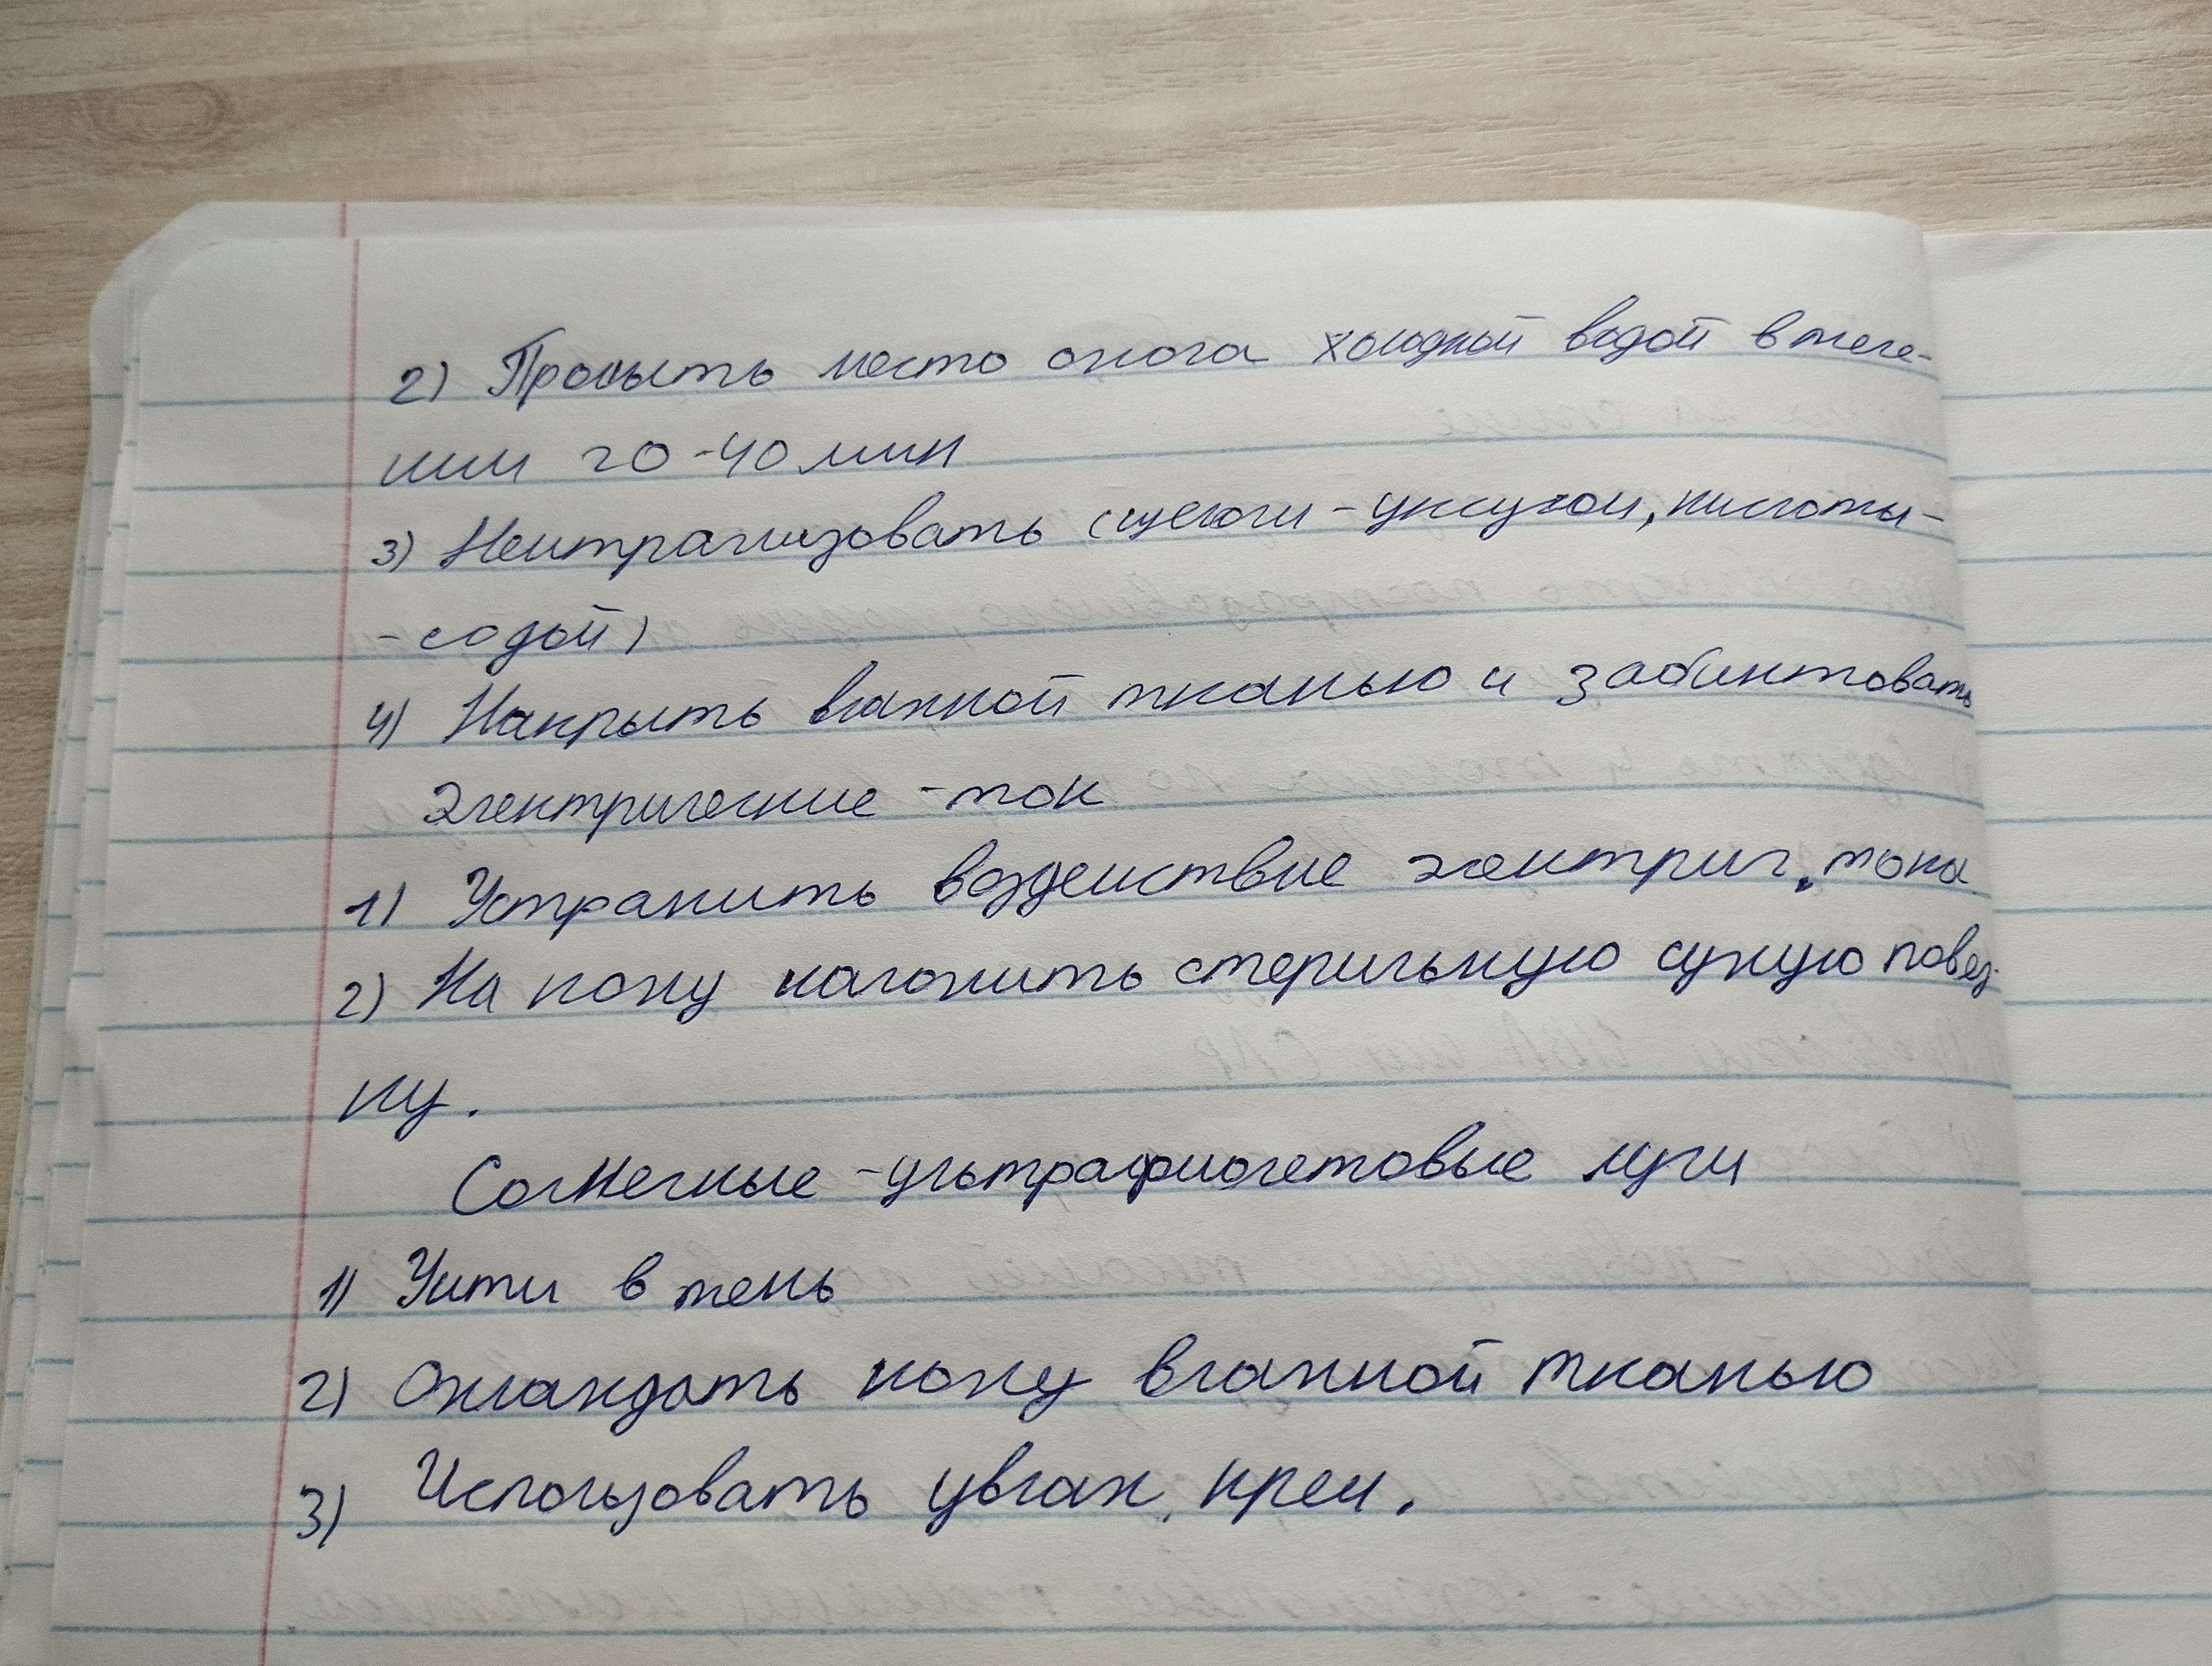 2) Промыть место ожога холодной водой в тече-
нии 20-40 мин
3) Нейтрализовать (щелочи - уксусом, кислоты -
- содой)
4) Накрыть влажной тканью и забинтовать
Электрические - ток
1) Устранить воздействие электрич. тока
2) На кожу наложить стерильную сухую повяз-
ку.
Солнечные - ультрафиолетовые лучи
1) Уйти в тень
2) Охлаждать кожу влажной тканью
3) Использовать увлаж. крем.